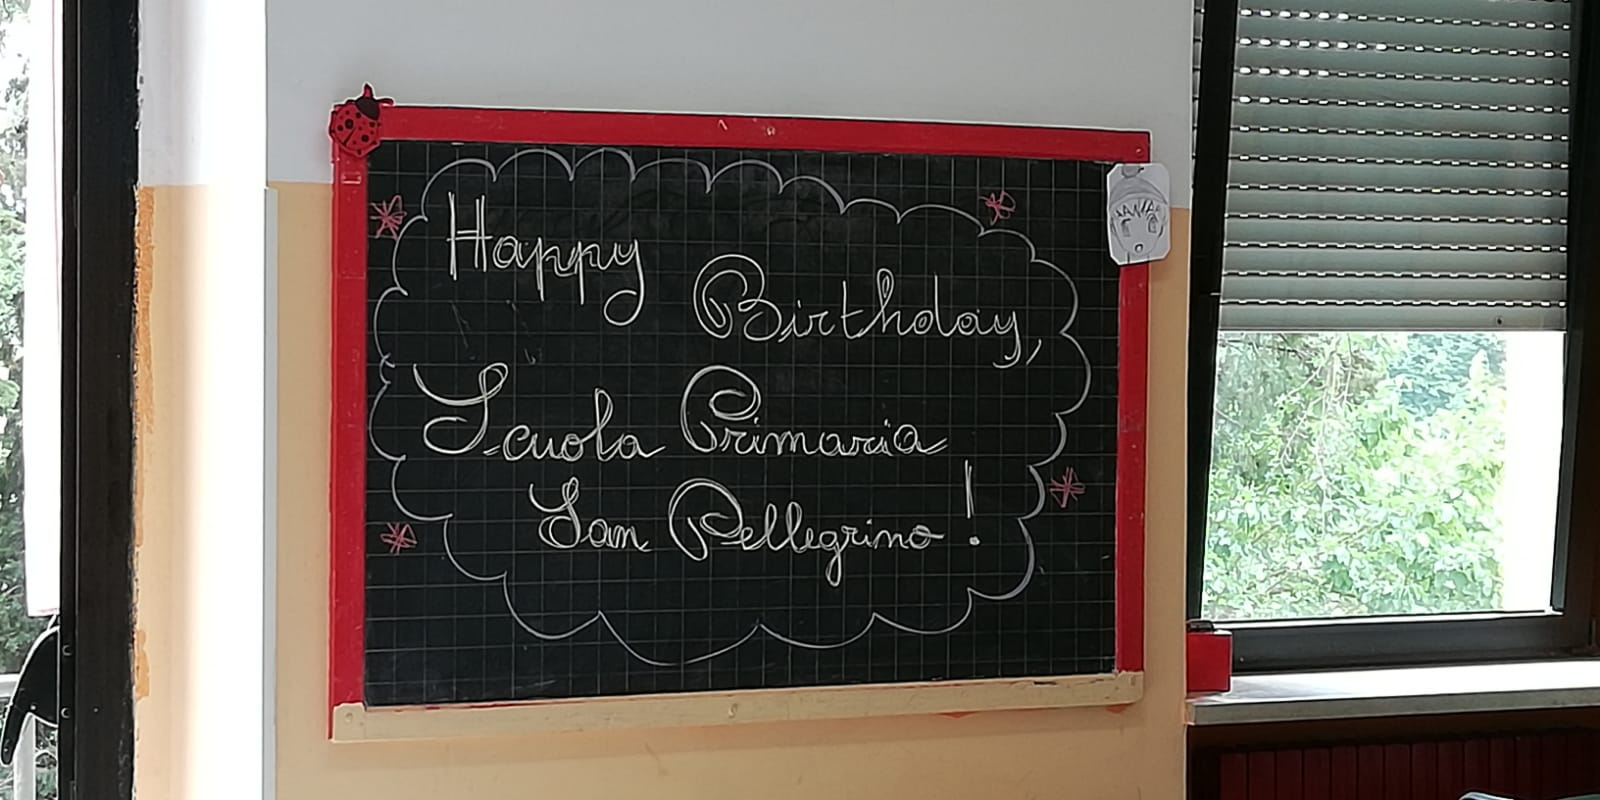 Happy
Birthday,
Scuola Primaria
San Pellegrino!